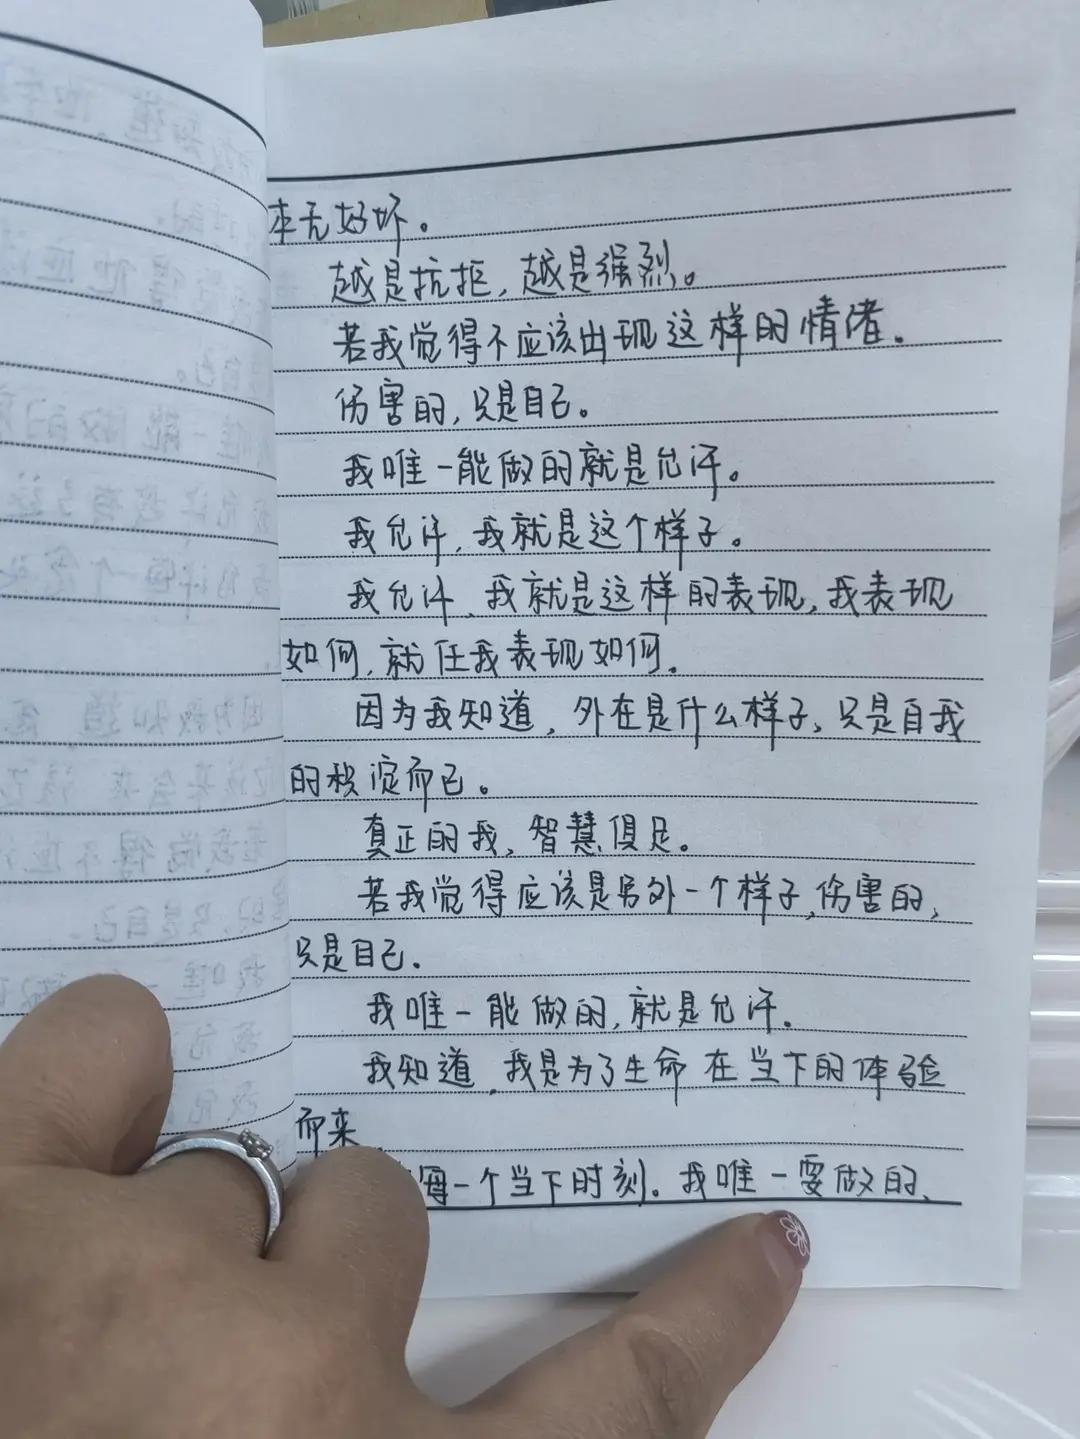 本无好坏。
越是抗拒,越是强烈。
若我觉得不应该出现这样的情绪。
伤害的,只是自己。
我唯一能做的就是允许。
我允许,我就是这个样子。
我允许,我就是这样的表现,我表现
如何,就任我表现如何。
因为我知道,外在是什么样子,只是自我
的积淀而已。
真正的我,智慧俱足。
若我觉得应该是另外一个样子,伤害的,
只是自己.
我唯一能做的,就是允许.
我知道,我是为了生命在当下的体验
而来
每一个当下时刻.我唯一要做的、